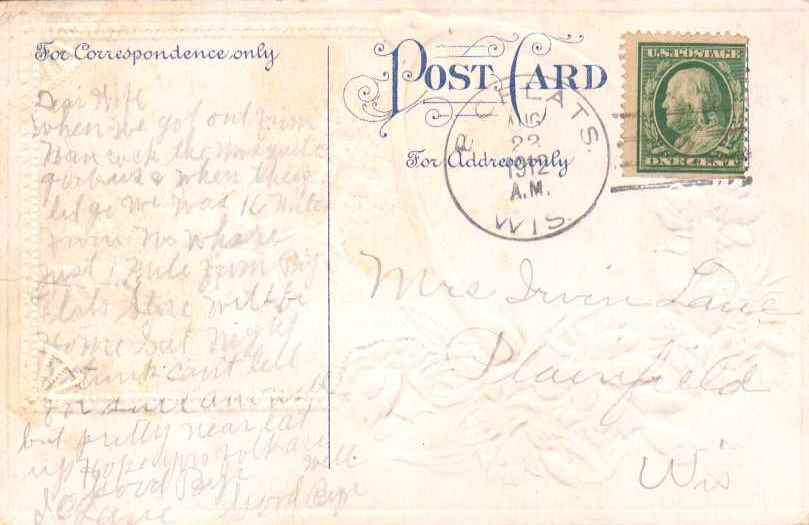 For Correspondence only
POST CARD
For Address only
U.S. POSTAGE
ONE CENT
FLATS.
22
1912
A.M.
WIS.
Dear Wife
when we got out from
Hancock the
when they
let go we was 16 miles
from no whare
just 1 mile from Big
Flats Store will be
Home Sat night
I think cant tell
but pretty near eat
up Hope you folks are well
Good Bye
Lane Good Bye
Mrs Irvin Lane
Plainfield
Wis